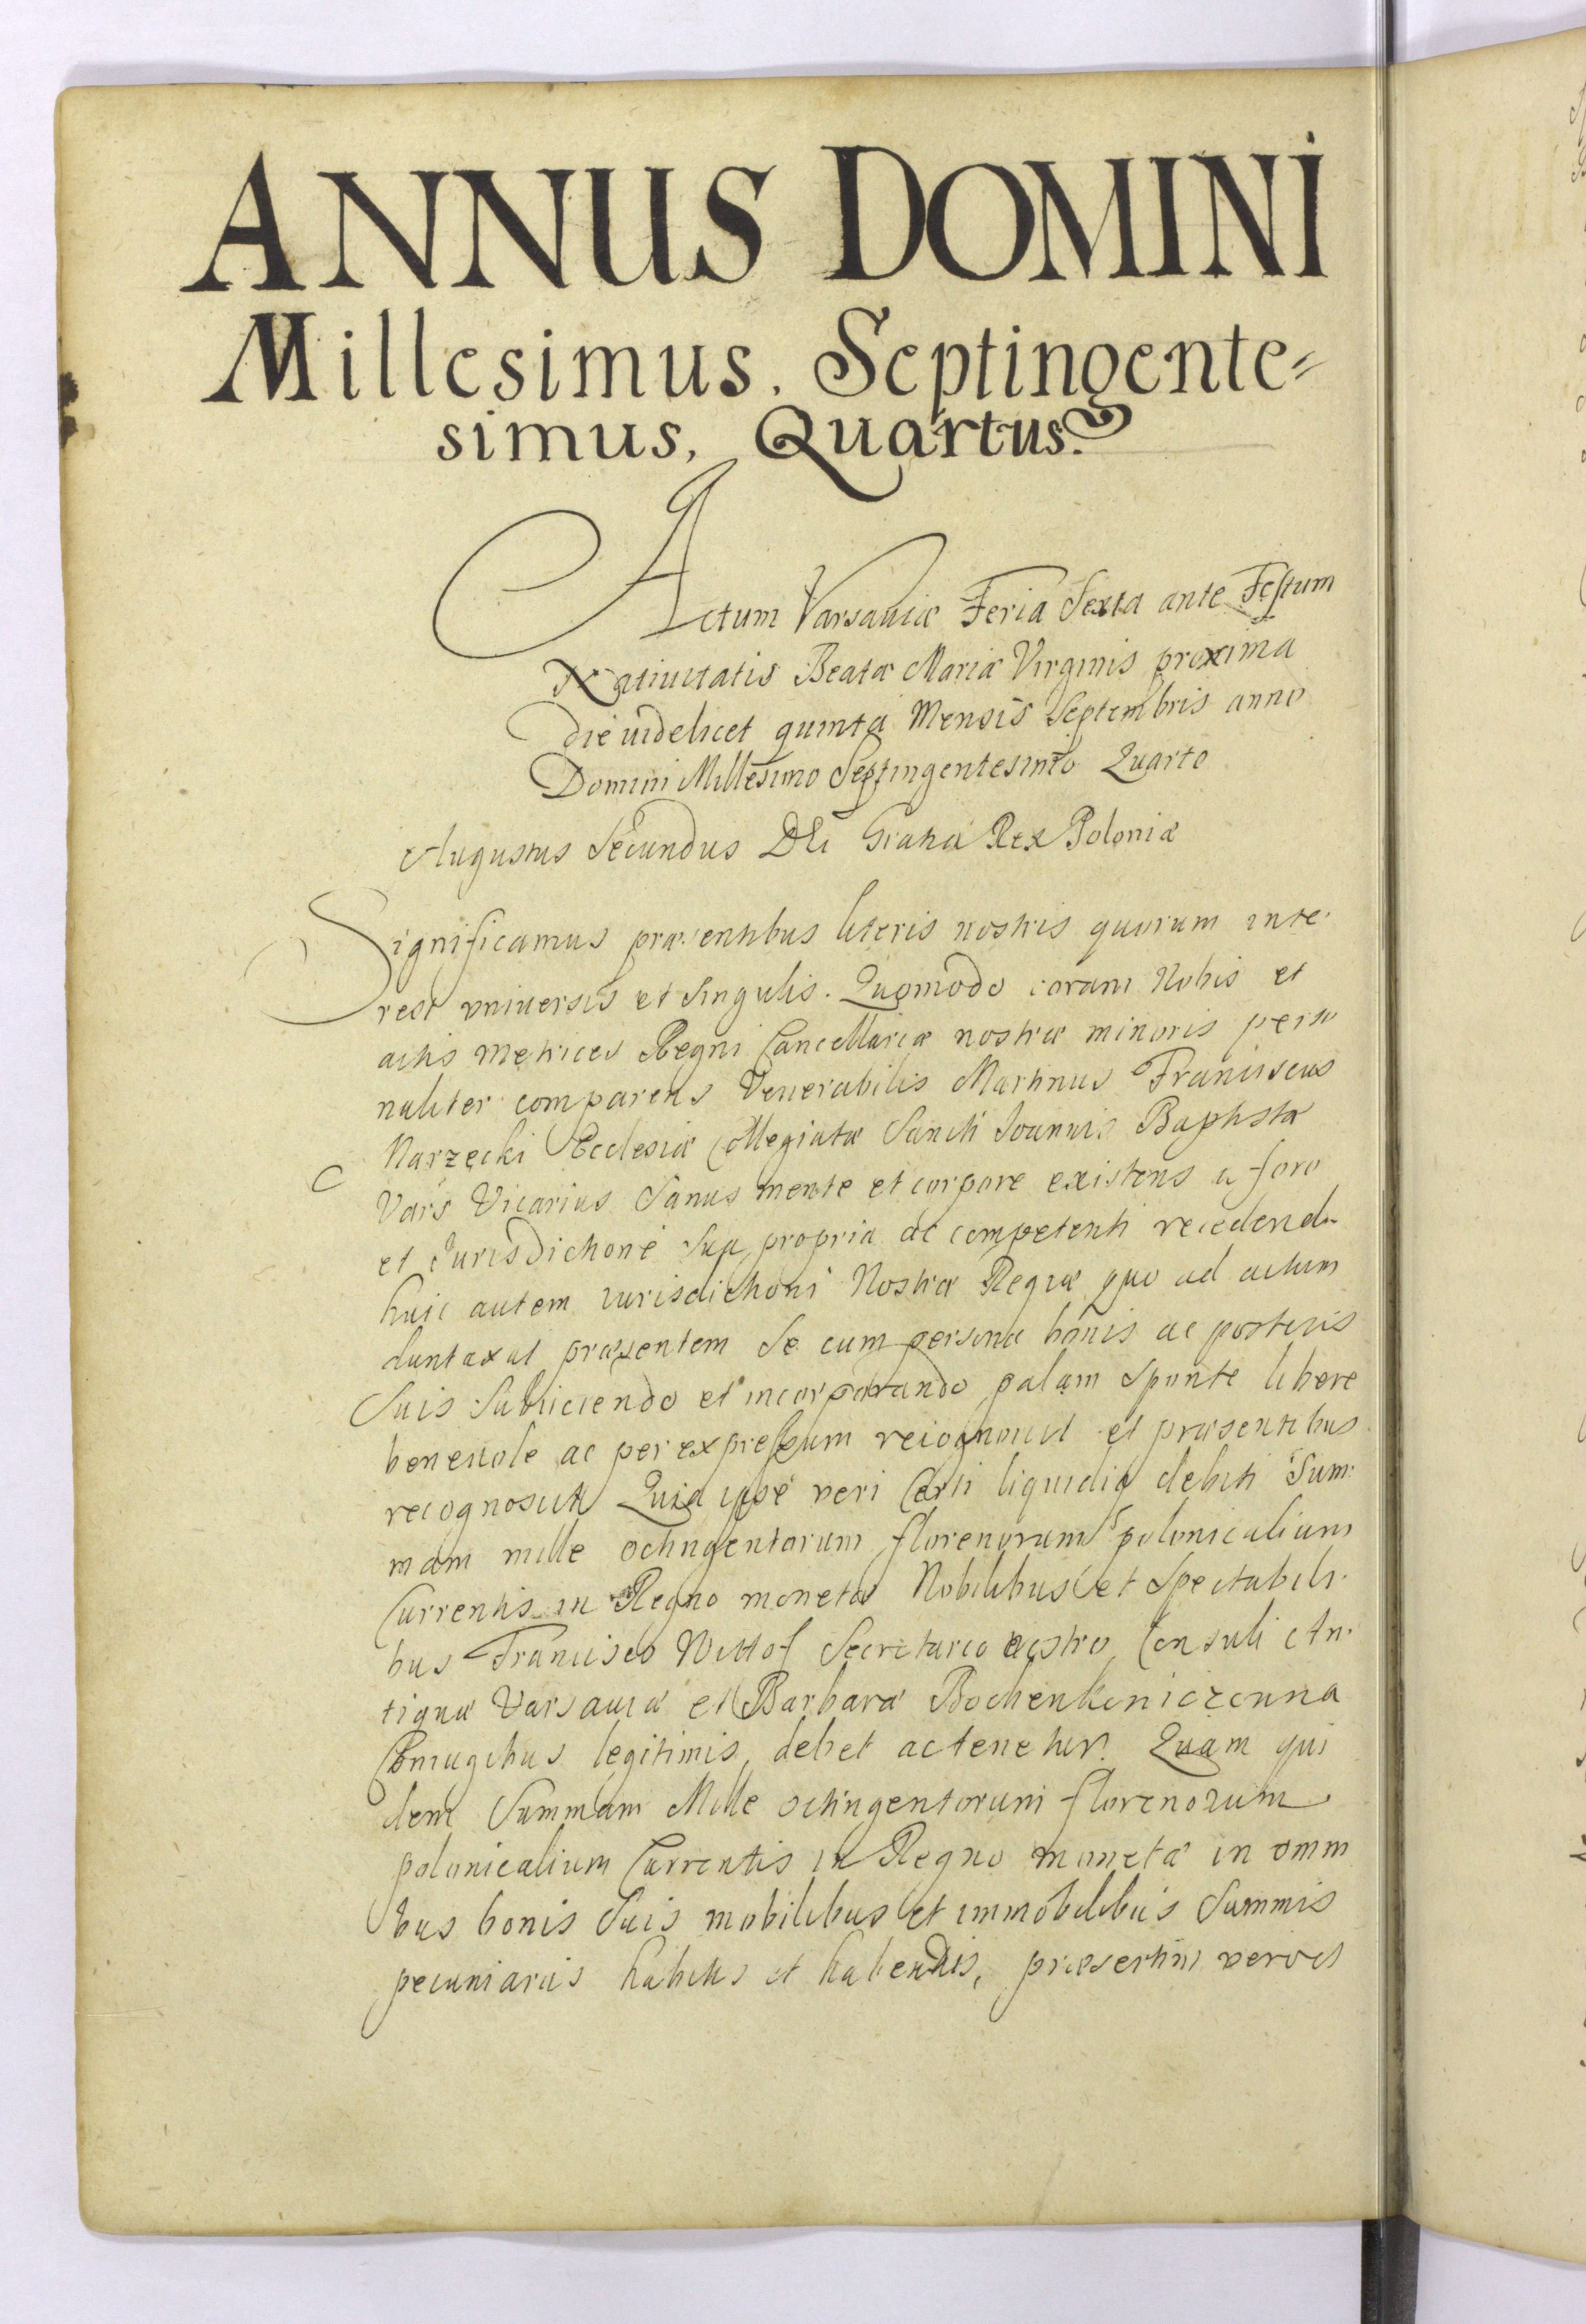 ANNUS DOMINI
Millesimus. Septingente=
simus, Quartus.
Actum Varsauiæ Feria Sexta ante Festum
Natiuitatis Beatæ Mariæ Virginis proxima
die uidelicet quinta Mensis Septembris anno
Domini Millesimo Septingentesimo Quarto
Augustus Secundus DEi Gratia Rex Poloniæ
Significamus præsentibus literis nostris quorum inte-
rest vniuersis et singulis. Quomodo coram Nobis et
actis Metrices Regni Cancellariæ nostræ minoris perso
naliter comparens Venerabilis Martinus Franciscus
Narzęcki Ecclesiæ Collegiatæ Sancti Joannis Baptistæ
Vars Vicarius Sanus mente et corpore existens a foro
et Jurisdictione sua propria ac competenti recedendo
huic autem iurisdictioni Nostræ Regiæ quo ad actum
duntaxat præsentem se cum persona bonis ac posteris
Suis Subiiciendo et incorporando palam sponte libere
beneuole ac per expressum recognouit et præsentibus
recognoscit Quia ipse veri certi liquidiq debiti Sum-
mam mille octingentorum florenorum polonicalium
Currentis in Regno monetæ Nobilibus et Spectabili-
bus Francisco Wittof Secretario nostro, Consuli An-
tiquæ Varsauiæ et Barbaræ Bochenkowiczonna
Coniugibus legitimis, debet ac tenetur. Quam qui
dem Summam Mille octingentorum florenorum
polonicalium Currentis in Regno monetæ in omni
bus bonis Suis mobilibus et immobilibus Summis
pecuniariis habitis et habendis, præsertim vero et